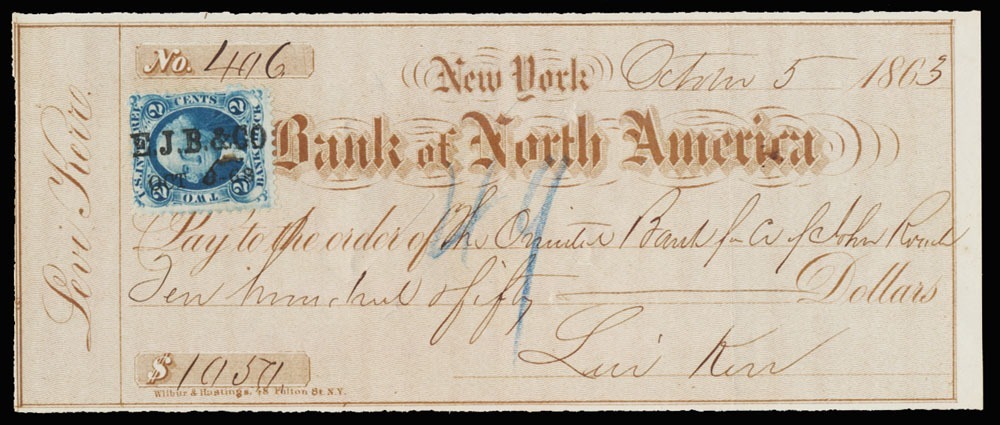 Levi Kerr.
No. 406
New York October 5 1863
U.S. INTER. REV.
2 CENTS 2
BANK CHECK
2 TWO 2
E.J.B.&CO
OCT 6
Bank of North America
49
Pay to the order of The Oriental Bank for a/c of John Roach
Ten hundred & fifty Dollars
Levi Kerr
$ 1050
Wilbur & Hastings, 48 Fulton St. N.Y.